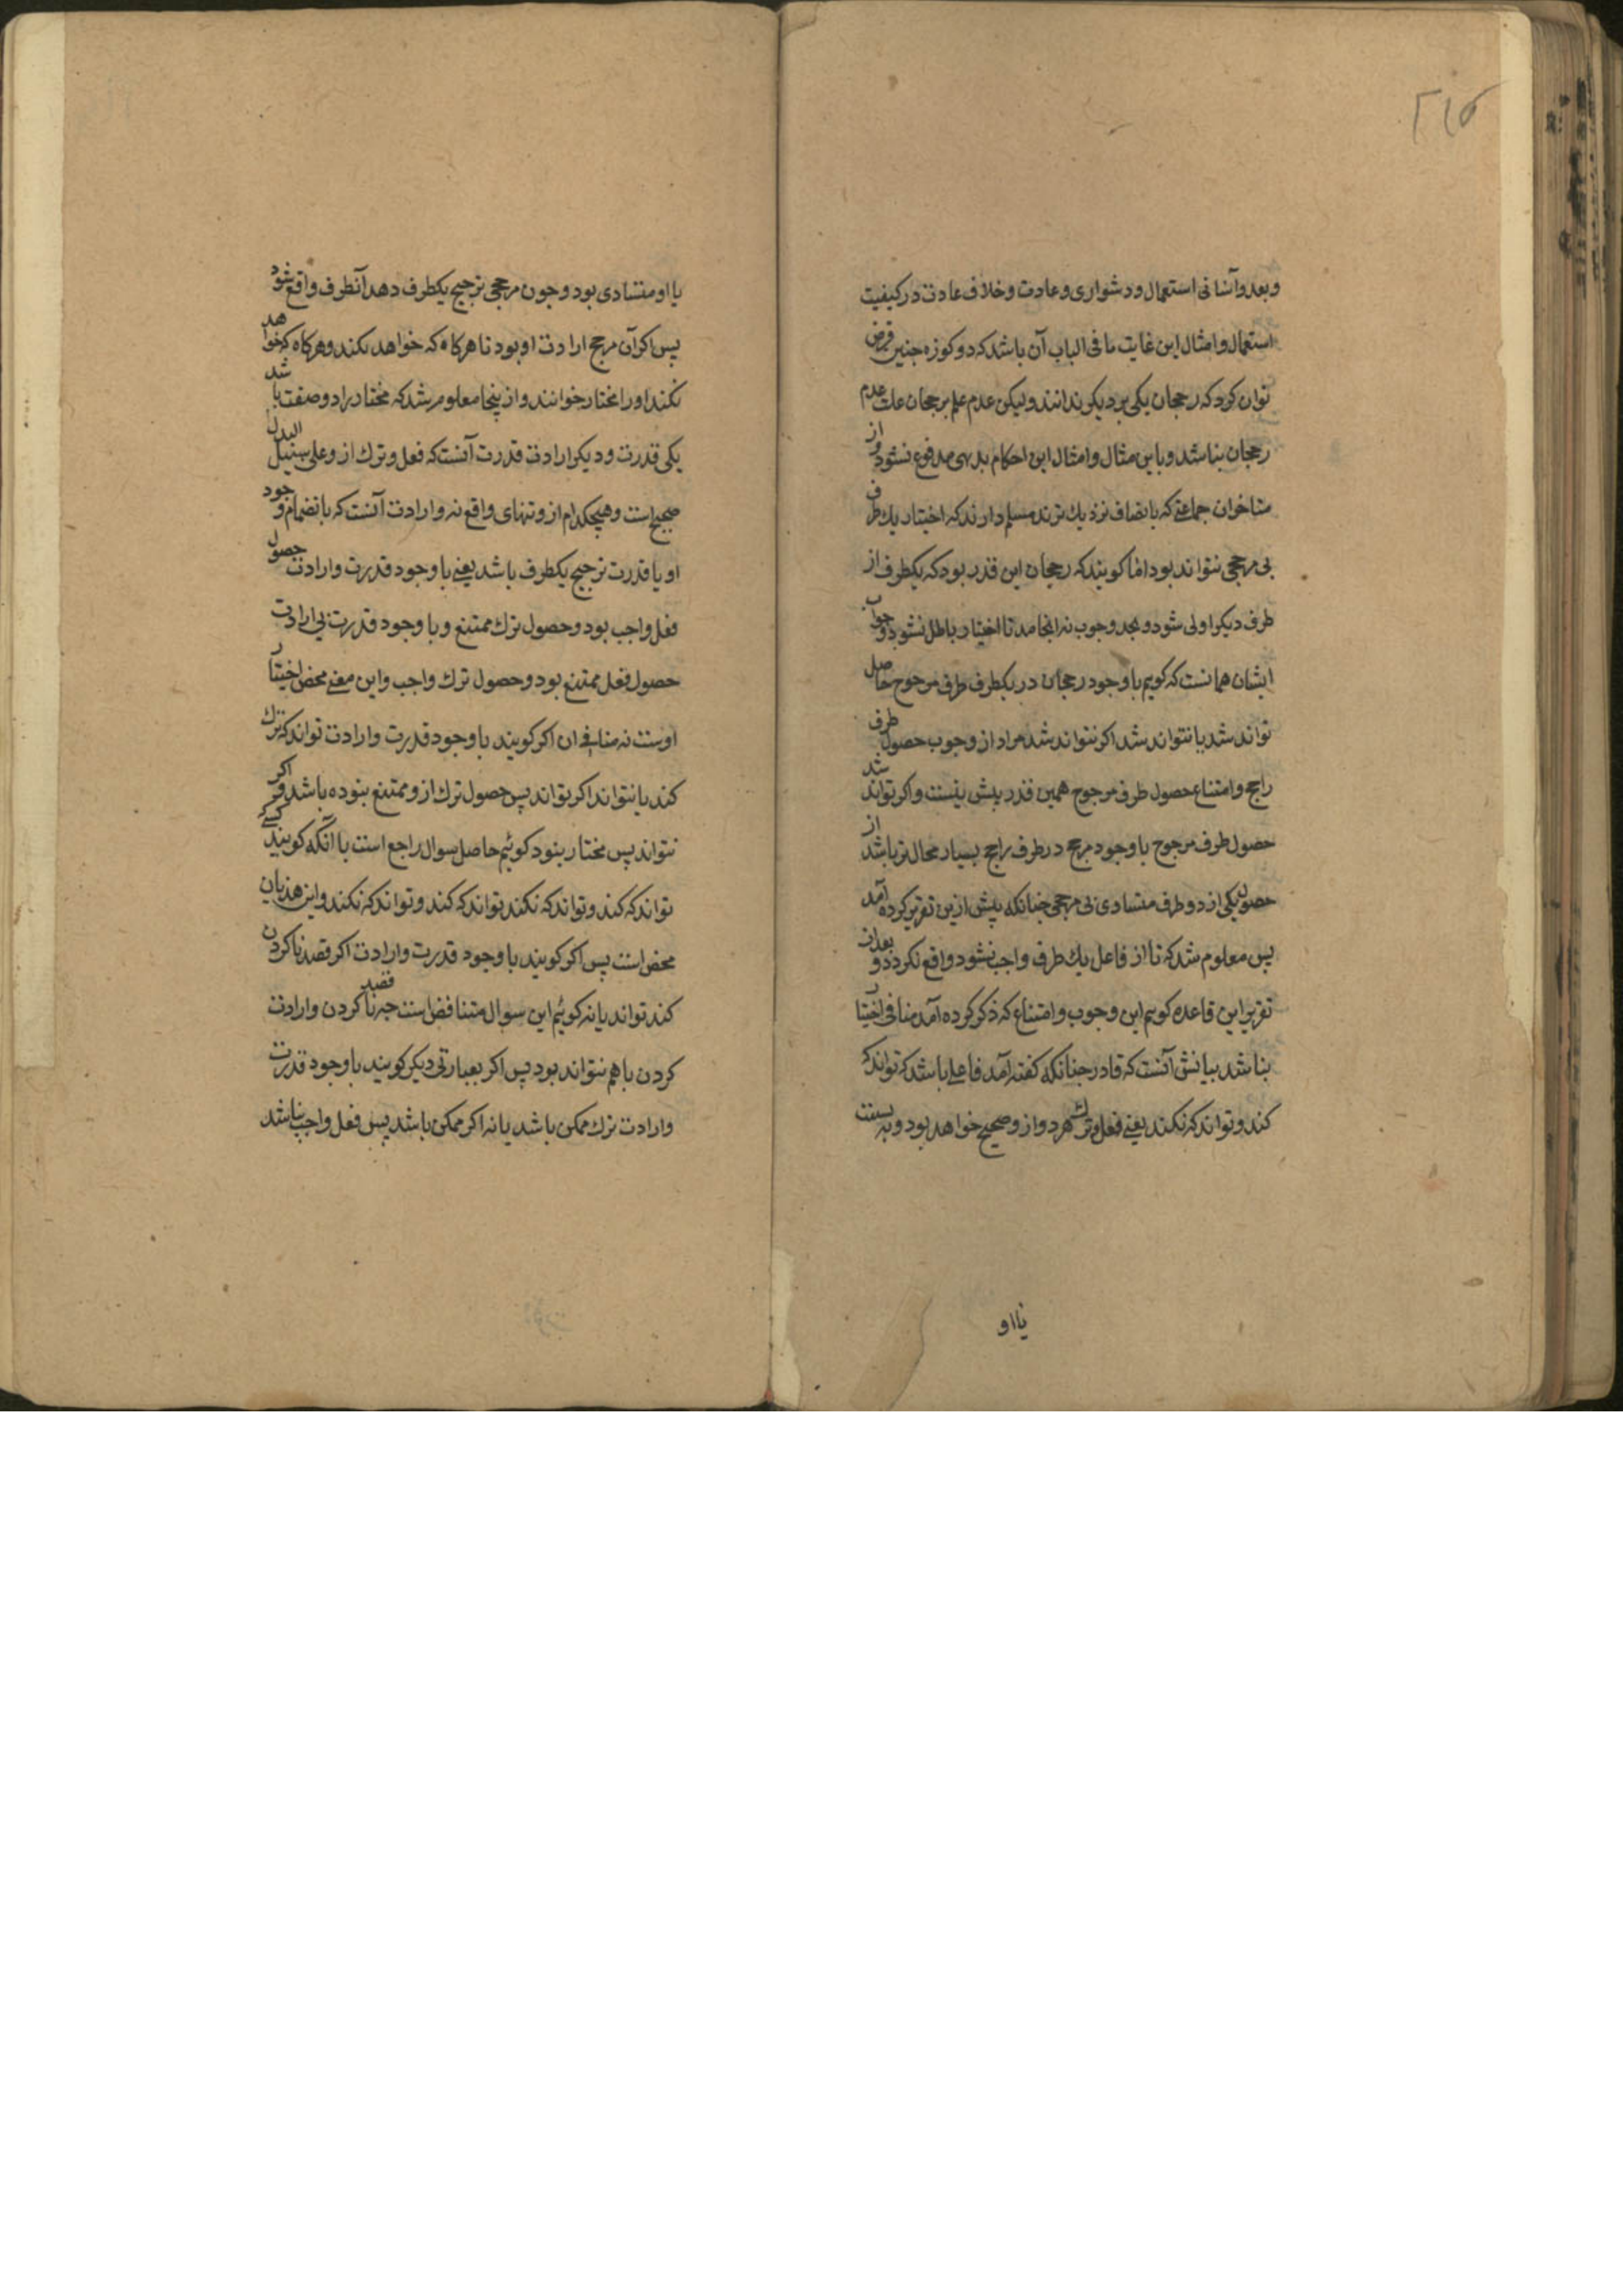 ۲۱۵
وبعد وآسانی استعمال ودشواری وعادت وخلاف عادت در کیفیت
استعمال وامثال این غایت ما فی الباب آن باشد که دو کوزه جنین فرض
توان کرد که رجحان یکی بر دیکر ندانند ولیکن عدم علم برجحان علت عدم
رجحان نباشد وباین مثال وامثال این احکام بدیهی مدفوع نشود واز
متاخران جماعتی که بانصاف نزدیک ترند مسلم دارند که اختیار یک طرف
بی مرجحی نتواند بود اما کویند که رجحان این قدر بود که یکطرف از
طرف دیکر اولی شود وبحد وجوب نه انجامد تا اختیار باطل نشود وجواب
ایشان همانست که کویم با وجود رجحان در یکطرف طرف مرجوح حاصل
تواند شد یا نتواند شد اکر نتواند شد مراد از وجوب حصول طرف
راجح وامتناع حصول طرف مرجوح همین قدر بیش نیست واکر تواند شد
حصول طرف مرجوح با وجود مرجح در طرف راجح بسیار محال تر باشد از
حصول یکی از دو طرف متساوی بی مرجحی جنانکه پیش ازین تقریر کرده آمد
پس معلوم شد که تا از فاعل یک طرف واجب نشود واقع نکردد وبعد از
تقریر این قاعده کویم این وجوب وامتناع که ذکر کرده آمد منافی اختیار
نباشد بیانش آنست که قادر جنانکه کفته آمد فاعلی باشد که تواند که
کند وتواند که نکند یعنی فعل وترک هر دو از وصحیح خواهد بود وبه نسبت
بااو
بااو متساوی بود وجون مرجحی ترجیح یکطرف دهد آنطرف واقع شود
پس اکر آن مرجح ارادت او بود تا هرکاه که خواهد بکند وهرکاه که خواهد
نکند اورا مختار خوانند وازینجا معلوم شد که مختار را دو صفت باشد
یکی قدرت ودیکر ارادت قدرت آنست که فعل وترک ازو علی سبیل البدل
صحیح است وهیچکدام ازو تنهای واقع نه وارادت آنست که بانضمام وجود
او با قدرت ترجیح یکطرف باشد یعنی با وجود قدرت وارادت حصول
فعل واجب بود وحصول ترک ممتنع وبا وجود قدرت بی ارادت
حصول فعل ممتنع بود وحصول ترک واجب واین معنی محض اختیار
اوست نه منافی ان اکر کویند با وجود قدرت وارادت تواند که ترک
کند یا نتواند اکر تواند پس حصول ترک ازو ممتنع نبوده باشد واکر
نتواند پس مختار نبود کوئیم حاصل سوال راجع است با آنکه کسی کویند
تواند که کند وتواند که نکند تواند که کند وتواند که نکند واین هذیان
محض است پس اکر کویند با وجود قدرت وارادت اکر قصد ناکردن
کند تواند یا نه کوئیم این سوال متناقض است جه قصد ناکردن وارادت
کردن باهم نتواند بود پس اکر بعبارتی دیکر کویند با وجود قدرت
وارادت ترک ممکن باشد یا نه اکر ممکن باشد پس فعل واجب نباشد